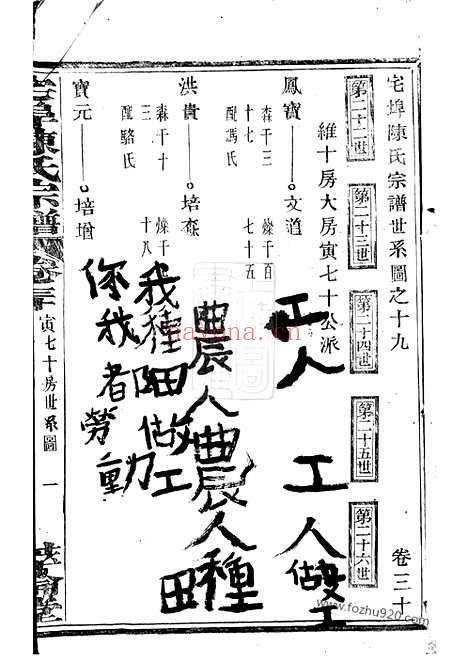 宅埠陳氏宗譜世系圖之十九
卷三十
第二十二世
第二十三世
第二十四世
第二十五世
第二十六世
維十房大房寅七十公派
鳳寶
文道
森千三
十七
配馮氏
燦千百
七十五
洪貴
培森
森千十
三
配駱氏
燦千
十八
寶元
培增
工人
工人做工
農人農人種田
我種田做工
你我者勞動
宅埠陳氏宗譜
卷三十
寅七十房世系圖
一
navena.cn
www.fozhu920.com